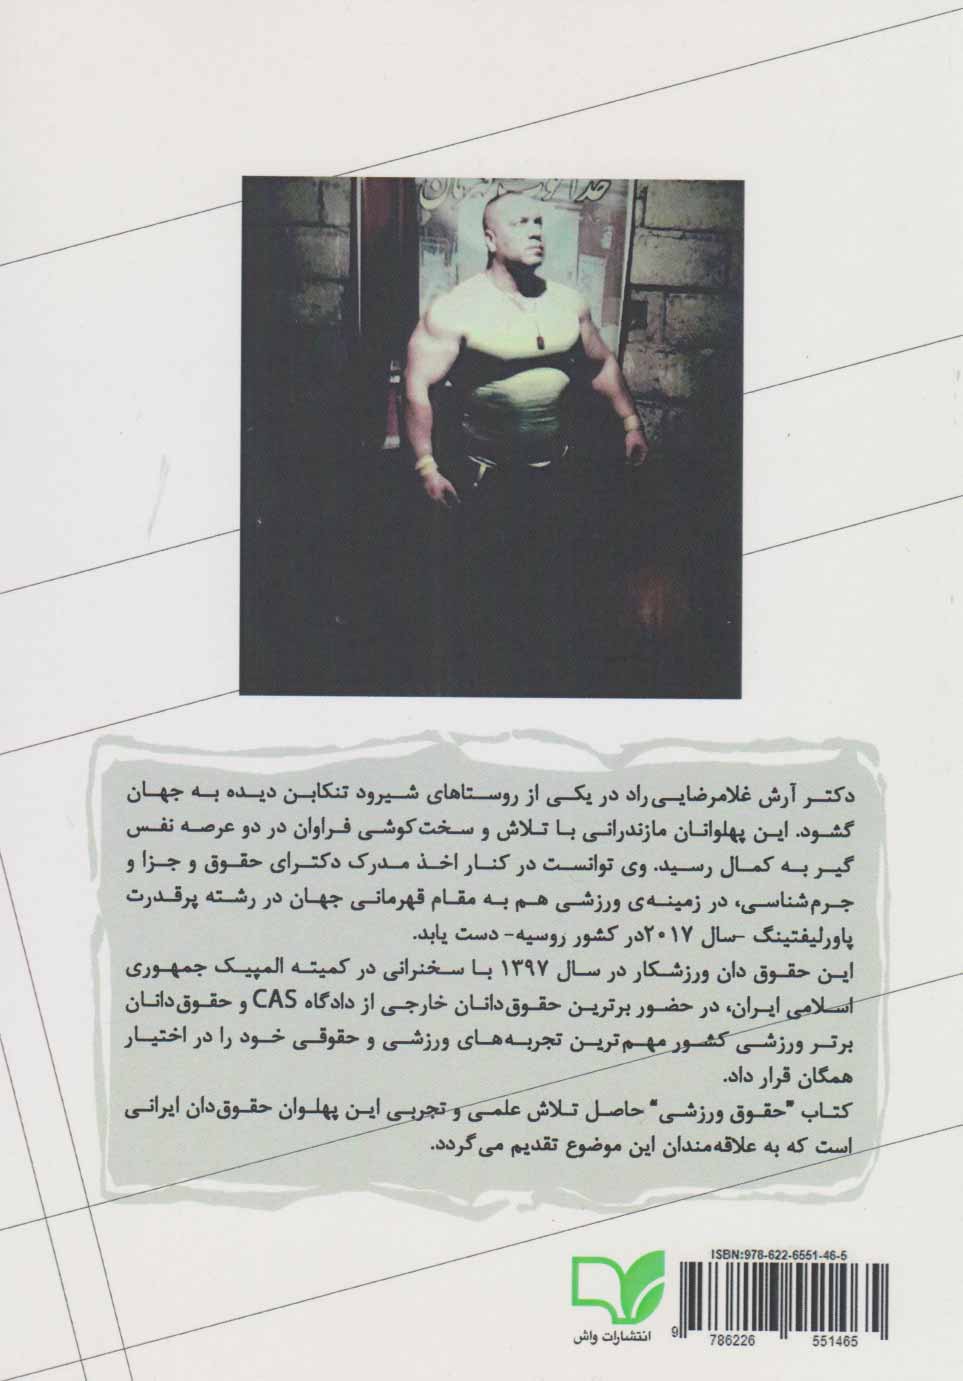 دکتر آرش غلامرضایی‌راد در یکی از روستاهای شیرود تنکابن دیده به جهان
گشود. این پهلوانان مازندرانی با تلاش و سخت‌کوشی فراوان در دو عرصه نفس
گیر به کمال رسید. وی توانست در کنار اخذ مدرک دکترای حقوق و جزا و
جرم‌شناسی، در زمینه‌ی ورزشی هم به مقام قهرمانی جهان در رشته پرقدرت
پاورلیفتینگ -سال ۲۰۱۷در کشور روسیه- دست یابد.
این حقوق دان ورزشکار در سال ۱۳۹۷ با سخنرانی در کمیته المپیک جمهوری
اسلامی ایران، در حضور برترین حقوق‌دانان خارجی از دادگاه CAS و حقوق‌دانان
برتر ورزشی کشور مهم‌ترین تجربه‌های ورزشی و حقوقی خود را در اختیار
همگان قرار داد.
کتاب "حقوق ورزشی" حاصل تلاش علمی و تجربی این پهلوان حقوق‌دان ایرانی
است که به علاقه‌مندان این موضوع تقدیم می‌گردد.
ISBN:978-622-6551-46-5
9 786226 551465
انتشارات واش